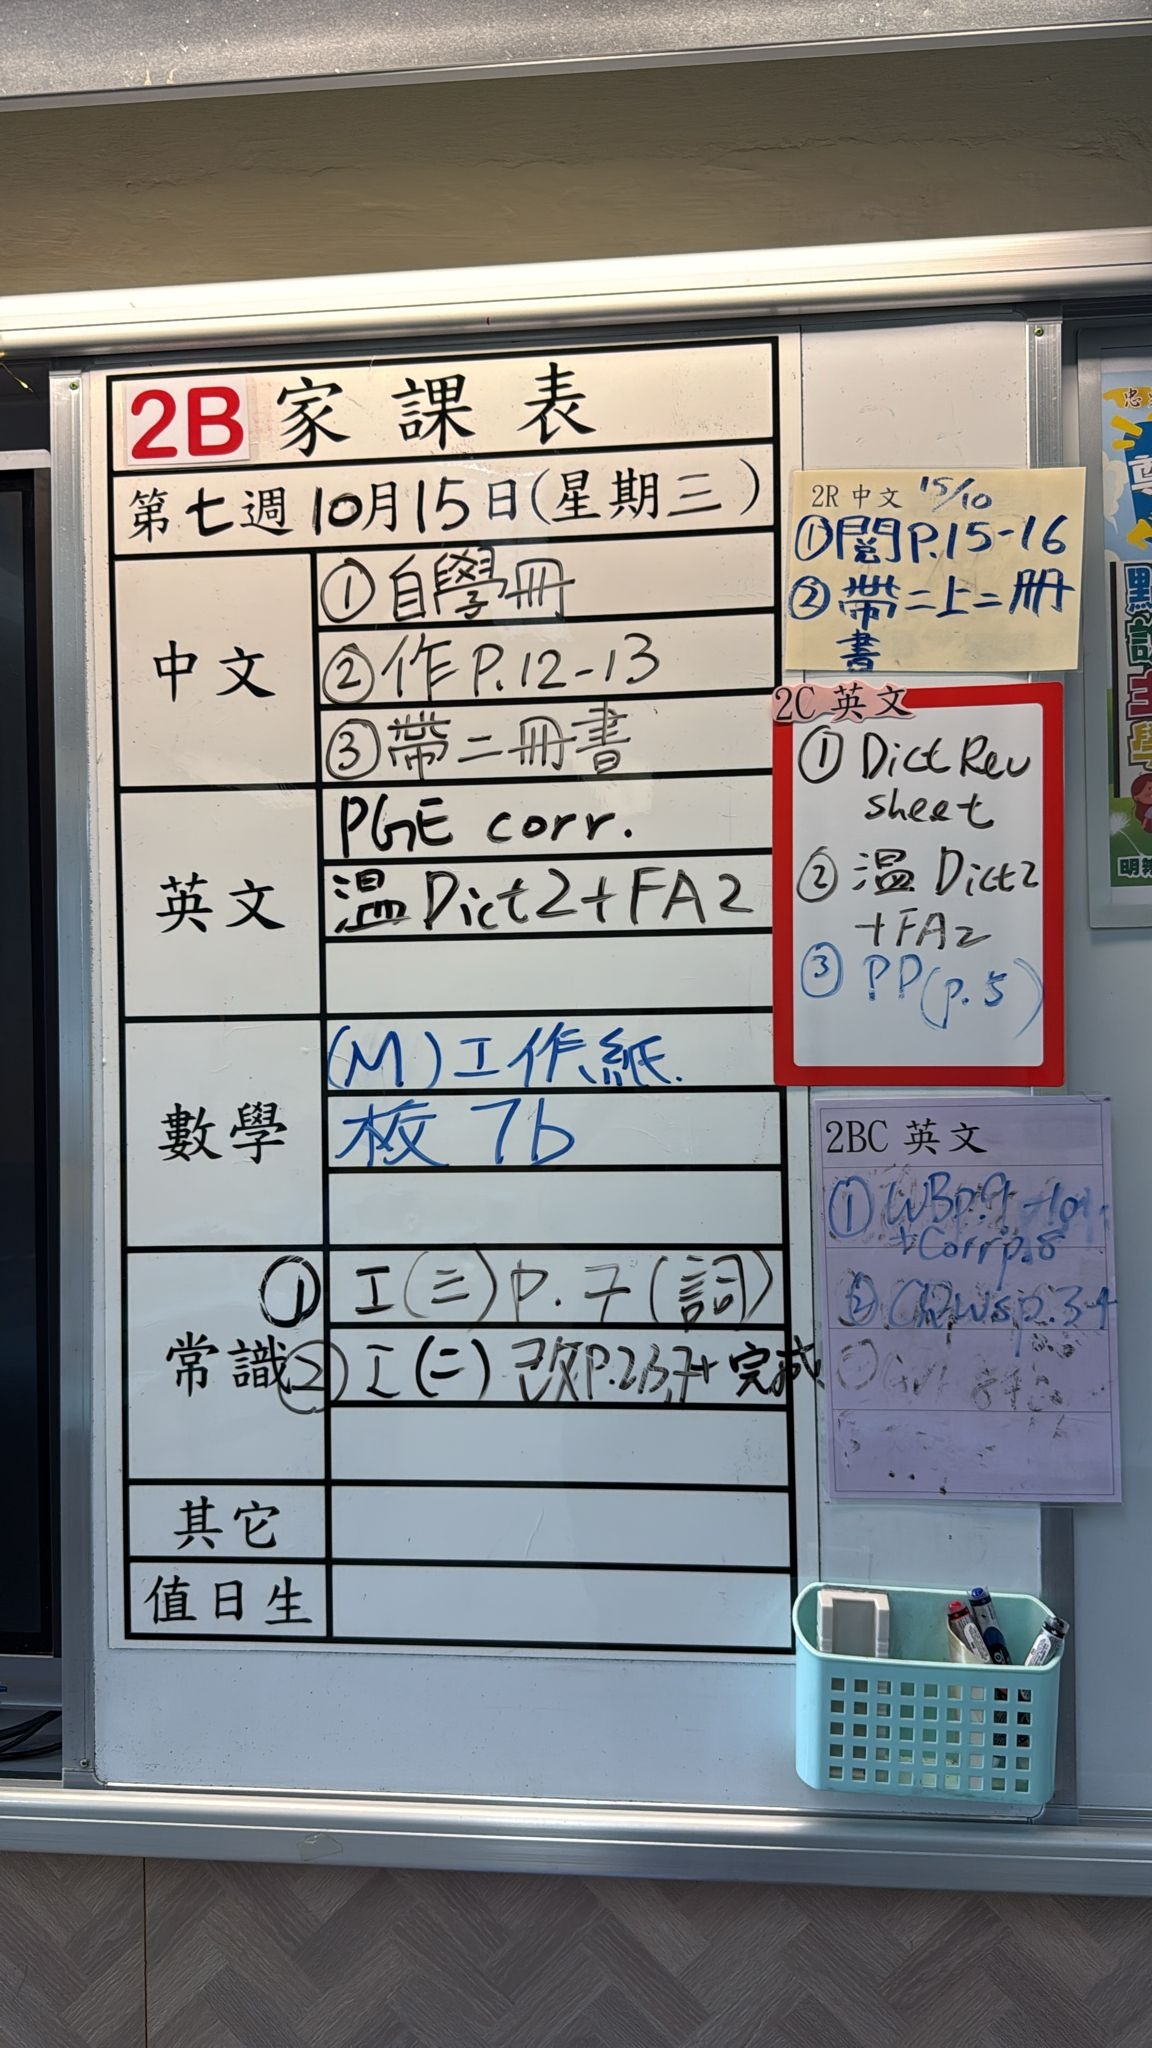 2B 家課表
第七週10月15日(星期三)
中文
①自學冊
②作P.12-13
③帶二冊書
英文
PGE corr.
溫Dict2+FA2
數學
(M)工作紙.
校 7b
常識
①工(三)p.7(詞)
②工(二)改p.2,3,7+完成
其它
值日生
2R 中文 15/10
①閱P.15-16
②帶二上二冊
書
2C 英文
① Dict Rev
sheet
② 溫 Dict2
+FA2
③ PP(p.5)
2BC 英文
① WBp.9-10
+Corr p.8
② p.3-4